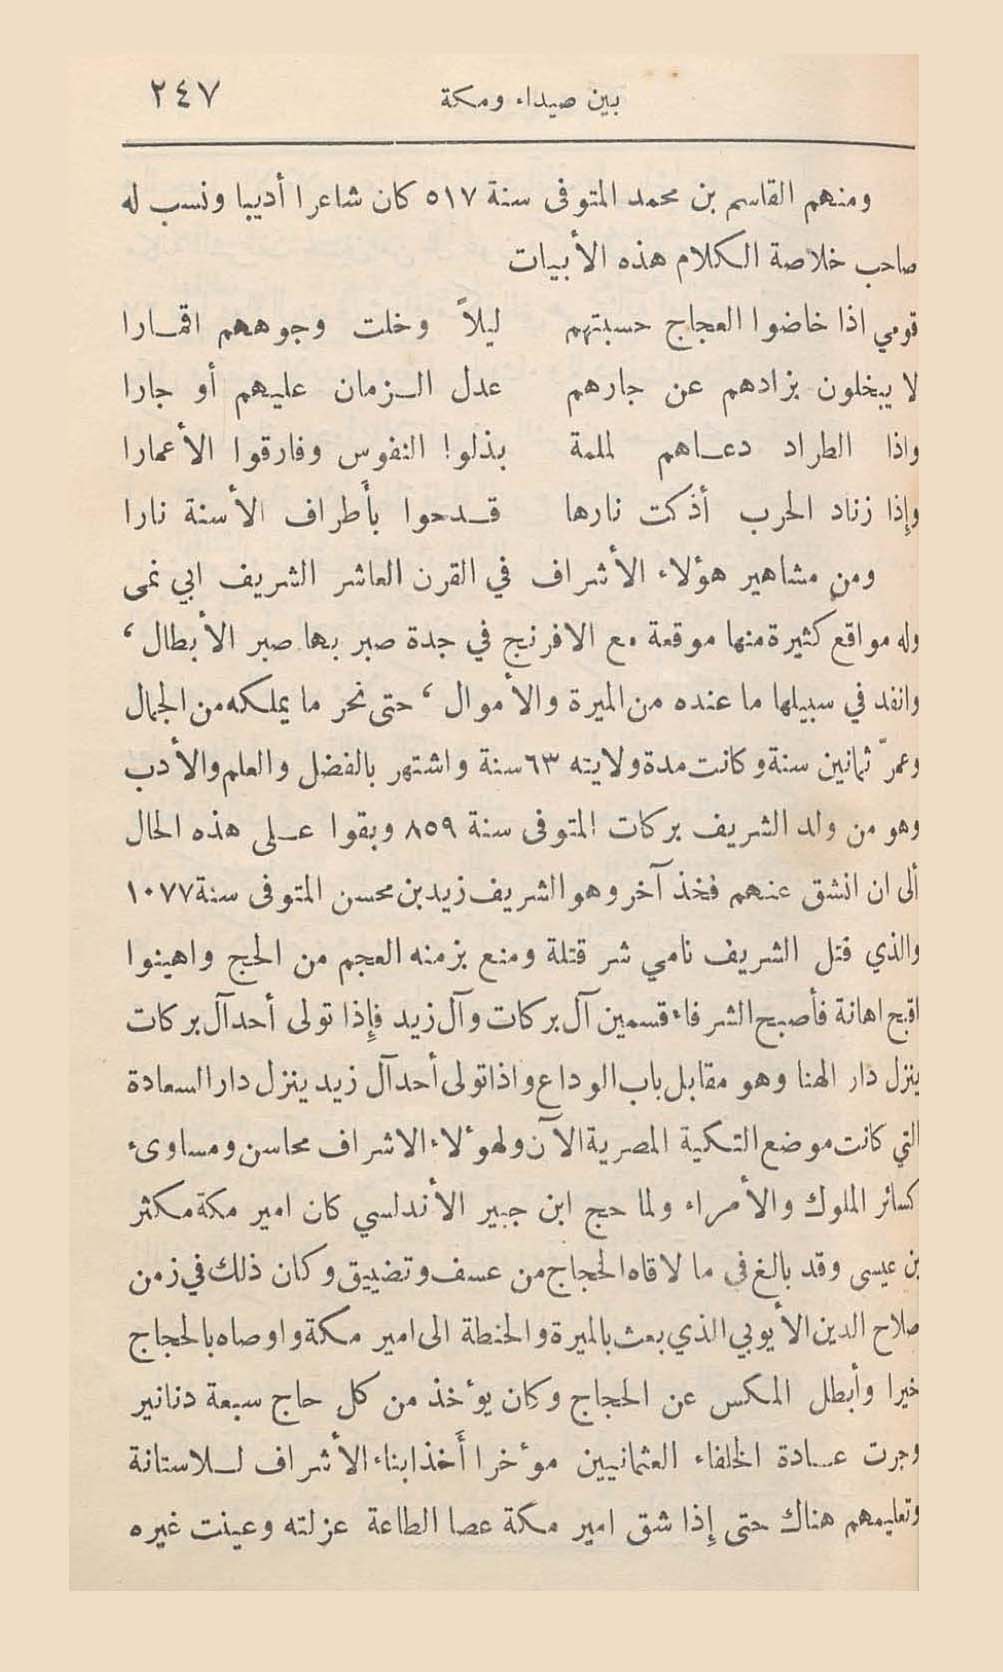 بين صيداء ومكة ٢٤٧
ومنهم القاسم بن محمد المتوفى سنة ٥١٧ كان شاعرا أديبا ونسب له
صاحب خلاصة الكلام هذه الأبيات
قومي اذا خاضوا العجاج حسبتهم ليلاً وخلت وجوههم اقمارا
لا يبخلون بزادهم عن جارهم عدل الزمان عليهم أو جارا
واذا الطراد دعاهم لملمة بذلوا النفوس وفارقوا الأعمارا
وإذا زناد الحرب أذكت نارها قدحوا بأطراف الأسنة نارا
ومن مشاهير هؤلاء الأشراف في القرن العاشر الشريف ابي نمى
وله مواقع كثيرة منها موقعة مع الافرنج في جدة صبر بها صبر الأبطال ،
وانفد في سبيلها ما عنده من الميرة والأموال ، حتى نحر ما يملكه من الجمال
وعمرّ ثمانين سنة وكانت مدة ولايته ٦٣ سنة واشتهر بالفضل والعلم والأدب
وهو من ولد الشريف بركات المتوفى سنة ٨٥٩ وبقوا على هذه الحال
ألى ان انشق عنهم فخذ آخر وهو الشريف زيد بن محسن المتوفى سنة ١٠٧٧
والذي قتل الشريف نامي شر قتلة ومنع بزمنه العجم من الحج واهينوا
اقبح اهانة فأصبح الشرفاء قسمين آل بركات وآل زيد فإذا تولى أحد آل بركات
ينزل دار الهنا وهو مقابل باب الوداع واذا تولى أحد آل زيد ينزل دار السعادة
التي كانت موضع التكية المصرية الآن ولهؤلاء الاشراف محاسن ومساوىء
كسائر الملوك والأمراء ولما حج ابن جبير الأندلسي كان امير مكة مكثر
بن عيسى وقد بالغ في ما لاقاه الحجاج من عسف وتضييق وكان ذلك في زمن
صلاح الدين الأيوبي الذي بعث بالميرة والحنطة الى امير مكة واوصاه بالحجاج
خيرا وأبطل المكس عن الحجاج وكان يؤخذ من كل حاج سبعة دنانير
وجرت عادة الخلفاء العثمانيين مؤخرا أخذ ابناء الأشراف للاستانة
وتعليمهم هناك حتى إذا شق امير مكة عصا الطاعة عزلته وعينت غيره